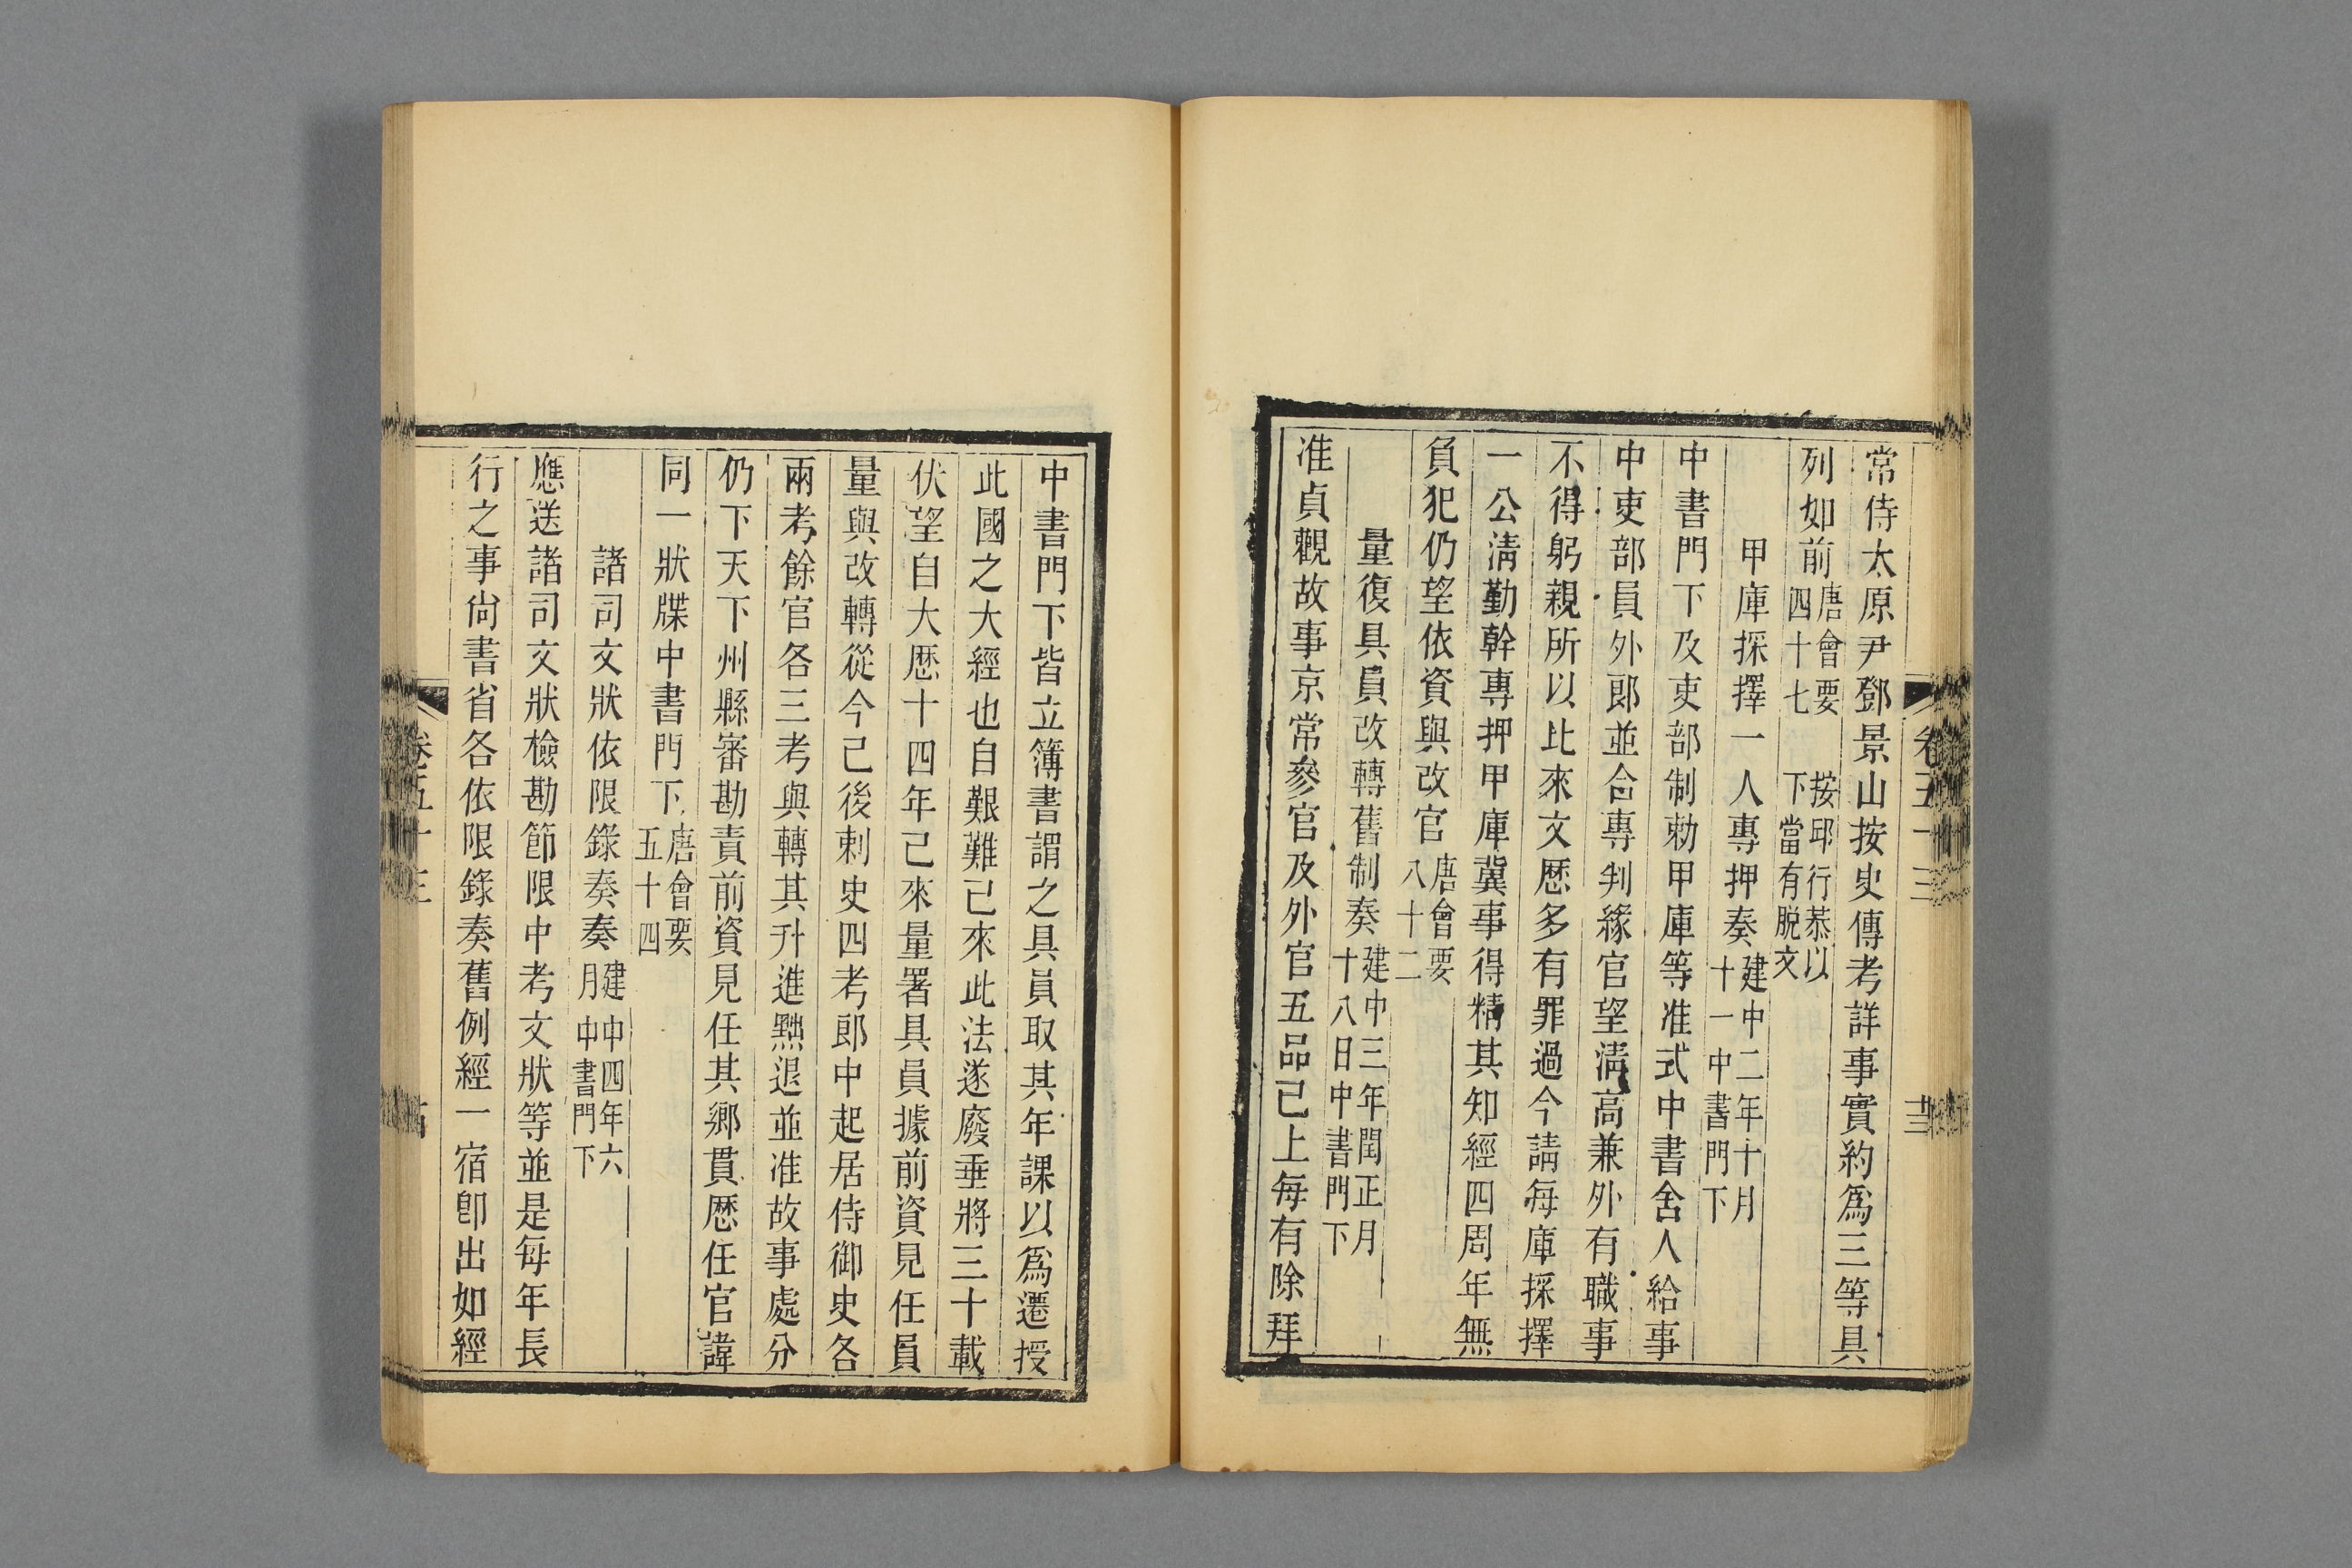 常侍太原尹鄧景山按史傳考詳事實約爲三等具
列如前唐會要四十七 按邱行恭以下當有脫文
甲庫採擇一人專押奏建中二年十月十一中書門下
中書門下及吏部制勅甲庫等准式中書舍人給事
中吏部員外郎並合專判緣官望淸高兼外有職事
不得躬親所以比來文歷多有罪過今請每庫採擇
一公淸勤幹專押甲庫冀事得精其知經四周年無
負犯仍望依資與改官唐會要八十二
量復具員改轉舊制奏建中三年閏正月十八日中書門下
准貞觀故事京常參官及外官五品已上每有除拜
中書門下皆立簿書謂之具員取其年課以爲遷授
此國之大經也自艱難已來此法遂廢垂將三十載
伏望自大歷十四年已來量署具員據前資見任員
量與改轉從今已後刺史四考郎中起居侍御史各
兩考餘官各三考與轉其升進黜退並准故事處分
仍下天下州縣審勘責前資見任其鄉貫歷任官諱
同一狀牒中書門下唐會要五十四
諸司文狀依限錄奏奏建中四年六月中書門下
應送諸司文狀檢勘節限中考文狀等並是每年長
行之事尙書省各依限錄奏舊例經一宿卽出如經
卷五十三